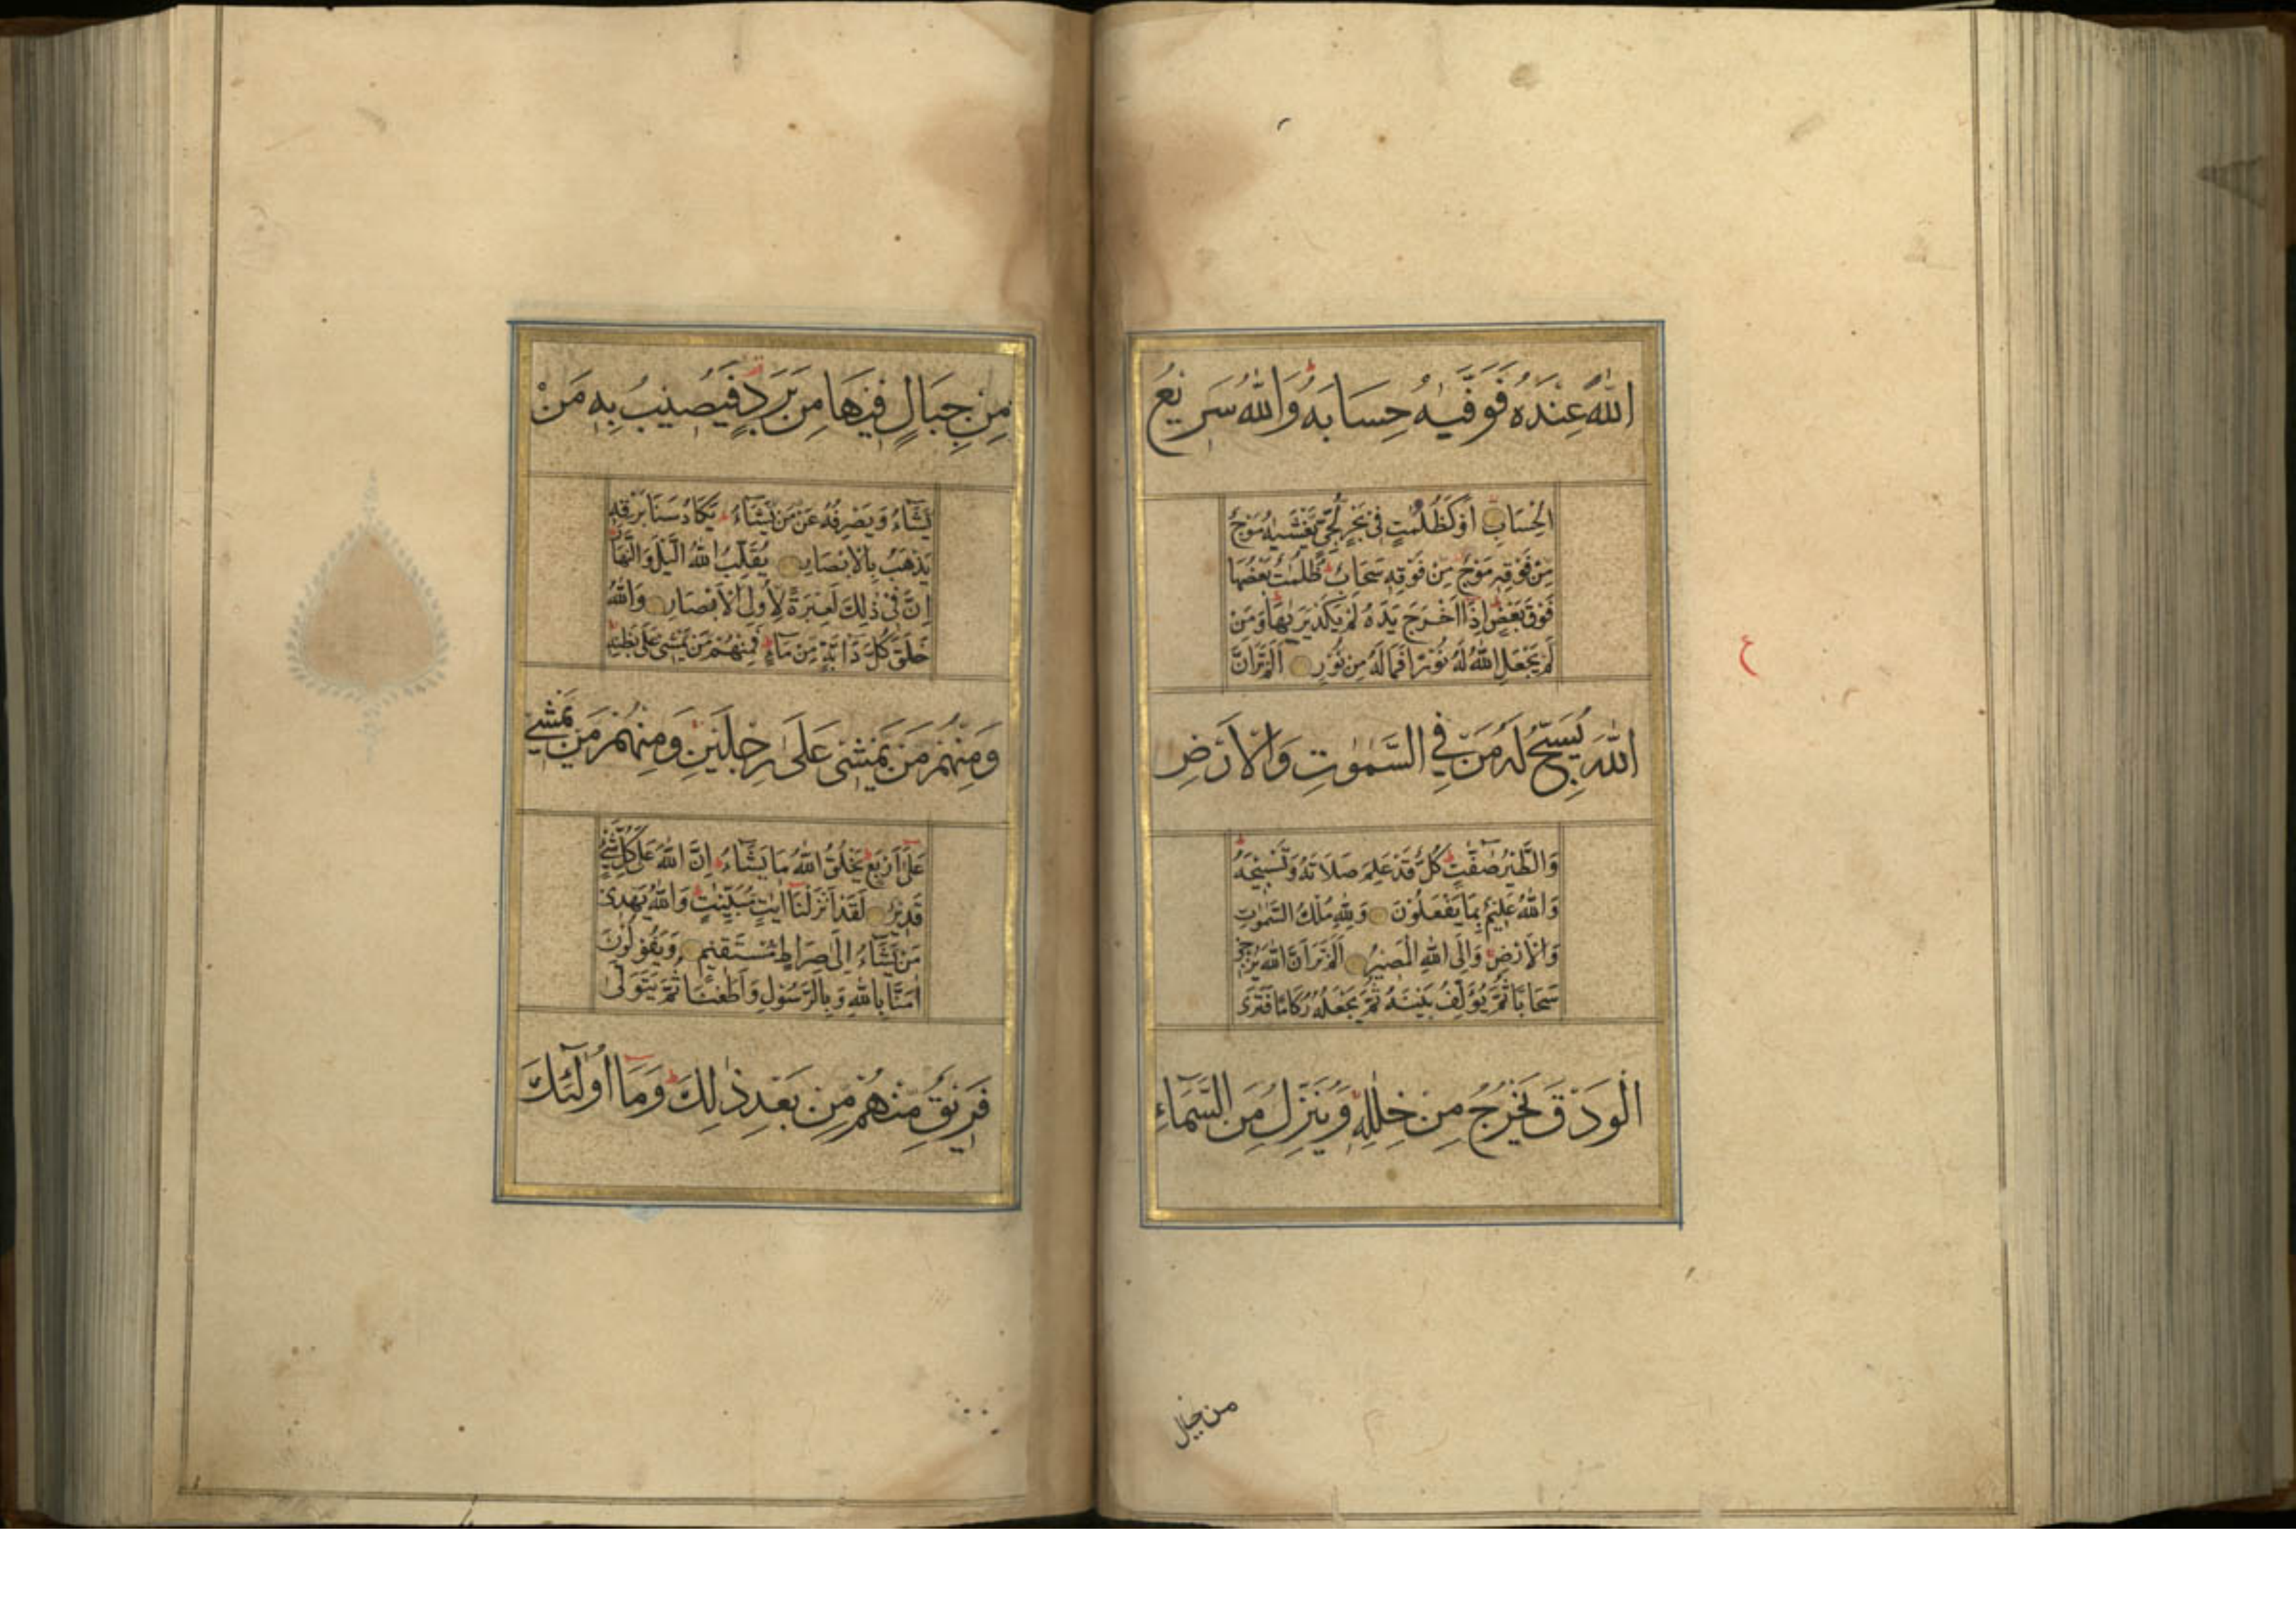 اللَّهَ عِنْدَهُ فَوَفَّيٰهُ حِسَابَهُ وَاللَّهُ سَرِيْعُ
الْحِسَابِ اَوْ كَظُلُمٰتٍ فِيْ بَحْرٍ لُجِّيٍّ يَغْشٰيهُ مَوْجٌ
مِنْ فَوْقِهِ مَوْجٌ مِنْ فَوْقِهِ سَحَابٌ ظُلُمٰتٌ بَعْضُهَا
فَوْقَ بَعْضٍ اِذَا اَخْرَجَ يَدَهُ لَمْ يَكَدْ يَرٰيهَا وَمَنْ
لَمْ يَجْعَلِ اللَّهُ لَهُ نُوْرًا فَمَا لَهُ مِنْ نُوْرٍ اَلَمْ تَرَ اَنَّ
اللَّهَ يُسَبِّحُ لَهُ مَنْ فِي السَّمٰوٰتِ وَالْاَرْضِ
وَالطَّيْرُ صٰفّٰتٍ كُلٌّ قَدْ عَلِمَ صَلَاتَهُ وَتَسْبِيْحَهُ
وَاللَّهُ عَلِيْمٌ بِمَا يَفْعَلُوْنَ وَلِلّٰهِ مُلْكُ السَّمٰوٰتِ
وَالْاَرْضِ وَاِلَى اللَّهِ الْمَصِيْرُ اَلَمْ تَرَ اَنَّ اللَّهَ يُزْجِيْ
سَحَابًا ثُمَّ يُؤَلِّفُ بَيْنَهُ ثُمَّ يَجْعَلُهُ رُكَامًا فَتَرَى
الْوَدْقَ يَخْرُجُ مِنْ خِلٰلِهِ وَيُنَزِّلُ مِنَ السَّمَآءِ
من جبال
ع
مِنْ جِبَالٍ فِيْهَا مِنْ بَرَدٍ فَيُصِيْبُ بِهِ مَنْ
يَشَآءُ وَيَصْرِفُهُ عَنْ مَنْ يَشَآءُ يَكَادُ سَنَا بَرْقِهِ
يَذْهَبُ بِالْاَبْصَارِ يُقَلِّبُ اللَّهُ الَّيْلَ وَالنَّهَارَ
اِنَّ فِيْ ذٰلِكَ لَعِبْرَةً لِاُولِي الْاَبْصَارِ وَاللَّهُ
خَلَقَ كُلَّ دَآبَّةٍ مِنْ مَآءٍ فَمِنْهُمْ مَنْ يَمْشِيْ عَلٰى بَطْنِهِ
وَمِنْهُمْ مَنْ يَمْشِيْ عَلٰى رِجْلَيْنِ وَمِنْهُمْ مَنْ يَمْشِيْ
عَلٰٓى اَرْبَعٍ يَخْلُقُ اللَّهُ مَا يَشَآءُ اِنَّ اللَّهَ عَلٰى كُلِّ شَيْءٍ
قَدِيْرٌ لَقَدْ اَنْزَلْنَآ اٰيٰتٍ مُبَيِّنٰتٍ وَاللَّهُ يَهْدِيْ
مَنْ يَشَآءُ اِلٰى صِرَاطٍ مُسْتَقِيْمٍ وَيَقُوْلُوْنَ
اٰمَنَّا بِاللَّهِ وَبِالرَّسُوْلِ وَاَطَعْنَا ثُمَّ يَتَوَلّٰى
فَرِيْقٌ مِنْهُمْ مِنْ بَعْدِ ذٰلِكَ وَمَآ اُولٰٓئِكَ